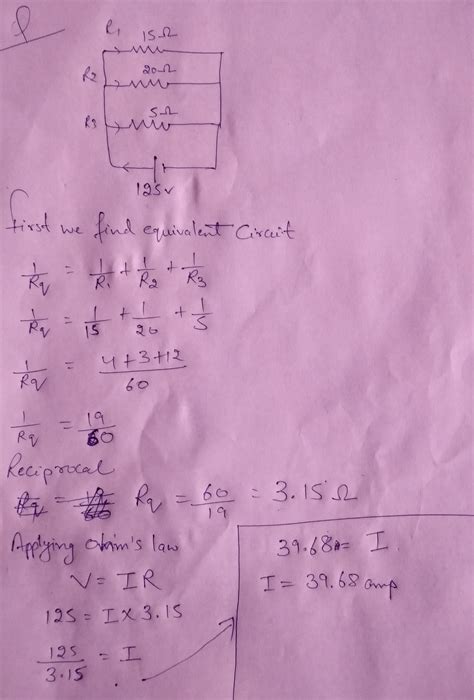 R1 15Ω
R2 20Ω
R3 5Ω
125v
first we find equivalent Circuit
1/Rq = 1/R1 + 1/R2 + 1/R3
1/Rq = 1/15 + 1/20 + 1/5
1/Rq = 4+3+12/60
1/Rq = 19/60
Reciprocal
Rq = 60/19 = 3.15Ω
Applying Ohm's law
V = IR
125 = I × 3.15
125/3.15 = I
39.68 = I
I = 39.68 amp